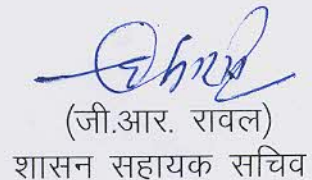 (जी.आर. रावल)
शासन सहायक सचिव